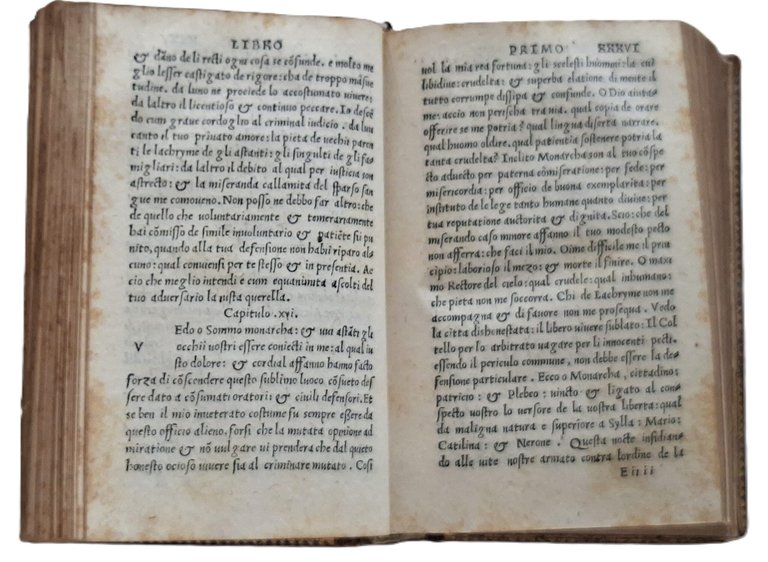 LIBRO
& dāno de li recti ogni cosa se cōfunde. e molto me
glio lesser castigato de rigore: cha de troppo māsue
tudine. da luno ne prociede lo accostumato uiuere:
da laltro il licentioso & continuo peccare. Io descē
do cum graue cordoglio al criminal iudicio. da lun
canto il tuo priuato amore: la pieta de uecchi paren
ti le lachryme de gli astanti: gli singulti de gli fa
migliari: da laltro il debito al qual per iusticia son
astrecto: & la miseranda callamita del sparso san
gue me comoueno. Non posso ne debbo far altro: che
de quello che uoluntariamente & temerariamente
hai cōmisso de simile inuoluntario & patiēte sii pu
nito, quando alla tua defensione non habii riparo al
cuno: qual conuiensi per te stesso & in presentia. Ac
cio che meglio intendi e cum equanimita ascolti del
tuo aduersario la iusta querella.
Capitulo .xvi.
V Edo o Sommo monarcha: & uui astāti gli
occhii uostri essere coniecti in me: al qual iu
sto dolore: & cordial affanno hamo facto
forza di cōscendere questo sublimo luoco cōsueto di
essere dato a cōsumati oratori: & ciuili defensori. Et
se ben il mio inueterato costume fu sempre eßere da
questo officio alieno, forsi che la mutata opinione ad
miratione & nō uulgare ui prendera che dal quieto
honesto ocioso uiuere sia al criminare mutato. Cosi
PRIMO XXXVI
uol la mia rea fortuna: gli scelesti huommi: la
libidine: crudelta: & superba elatione di mente il
tutto corrumpe dissipa & confunde. O Dio aiuta
me: accio non perischa tra uia. qual copia de orare
offerire se me potria? qual lingua diserta narrare.
qual huomo oldire. qual patientia sostenere potria la
tanta crudelta? Inclito Monarcha son al tuo cōspe
cto aducto per paterna cōmiseratione: per fede: per
misericordia: per officio de buona exemplarita: per
instituto de le lege tanto humane quanto diuine: per
tua reputatione auctorita & dignita. Scio: che del
miserando caso minore affanno il tuo modesto pecto
non afferra: che faci il mio. Oime difficile me il prin
cipio: laborioso il mezo: & morte il finire. O maxi
mo Rectore del cielo: qual crudele: qual inhumano:
che pieta non me soccorra. Chi de Lachryme non me
accompagna & di fauore non me prosequa. Vedo
la citta dishonestata: il libero uiuere sublato: Il Col
tello per lo arbitrato uagare per li innocenti pecti.
essendo il periculo commune, non debbe essere la de
fensione particulare. Ecco o Monarcha, cittadino:
patricio: & Plebeo: uincto & ligato al con
specto uostro lo uersore de la uostra liberta: qual
da maligna natura e superiore a Sylla: Mario:
Catilina: & Nerone. Questa nocte insidian
do alle uite nostre armato contra lordine de la
E iiii